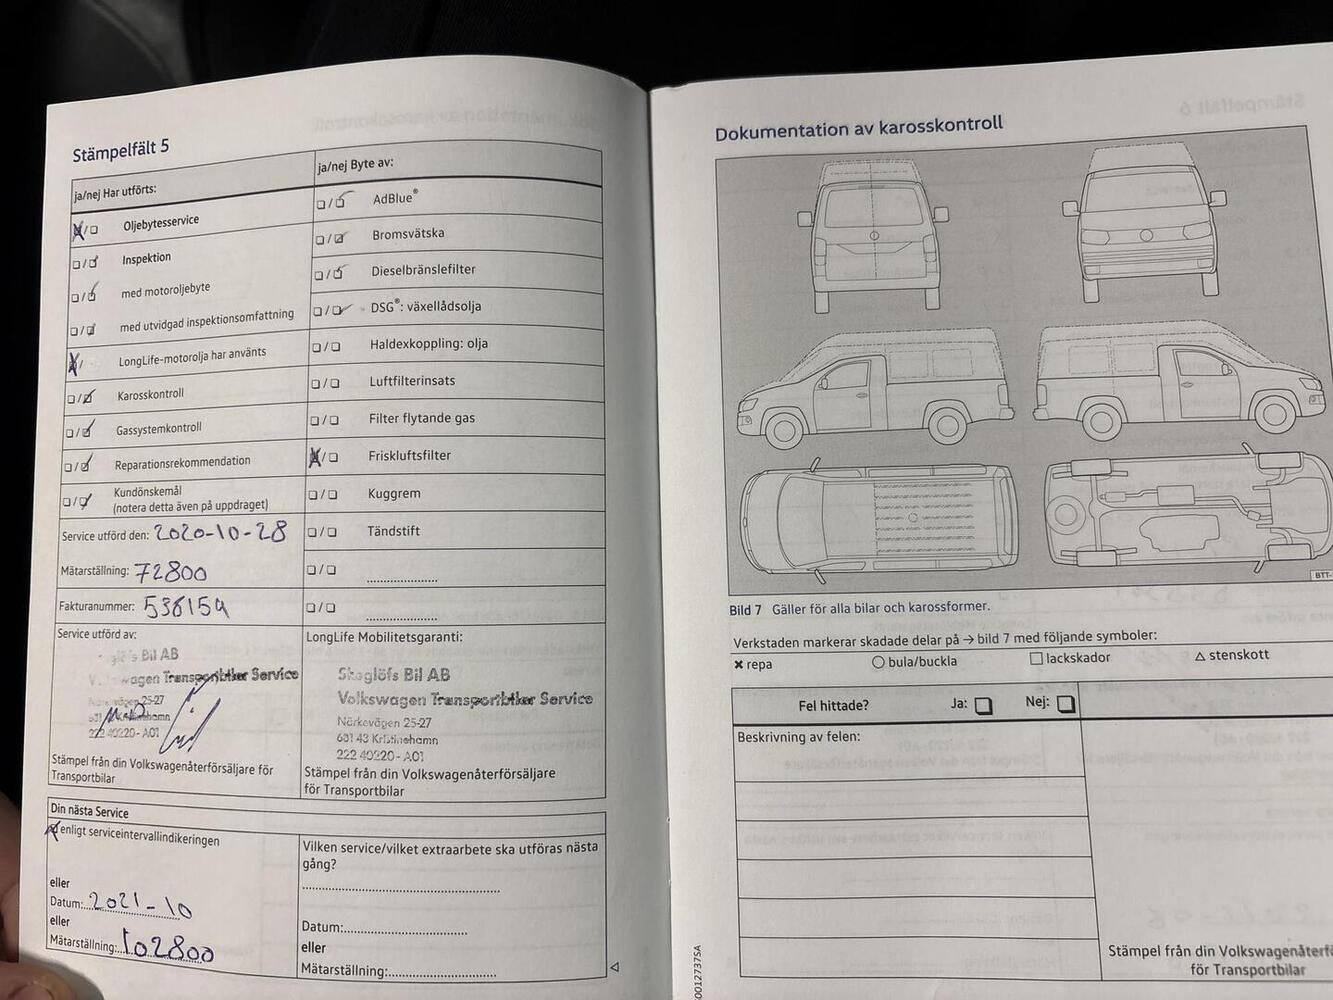 Stämpelfält 5
ja/nej Har utförts:
Oljebytesservice
Inspektion
med motoroljebyte
med utvidgad inspektionsomfattning
LongLife-motorolja har använts
Karosskontroll
Gassystemkontroll
Reparationsrekommendation
Kundönskemål
(notera detta även på uppdraget)
Service utförd den: 2020-10-28
Mätarställning: 72800
Fakturanummer: 536154
Service utförd av:
Bil AB
wagen Transportbilar Service
25-27
Kristinehamn
222 40220 - A01
Stämpel från din Volkswagenåterförsäljare för
Transportbilar
ja/nej Byte av:
AdBlue®
Bromsvätska
Dieselbränslefilter
DSG®: växellådsolja
Haldexkoppling: olja
Luftfilterinsats
Filter flytande gas
Friskluftsfilter
Kuggrem
Tändstift
LongLife Mobilitetsgaranti:
Skoglöfs Bil AB
Volkswagen Transportbilar Service
Närkevägen 25-27
681 43 Kristinehamn
222 40220 - A01
Stämpel från din Volkswagenåterförsäljare
för Transportbilar
Din nästa Service
enligt serviceintervallindikeringen
eller
Datum: 2021-10
eller
Mätarställning: 102800
Vilken service/vilket extraarbete ska utföras nästa
gång?
Datum:
eller
Mätarställning:
Dokumentation av karosskontroll
BTT-
Bild 7 Gäller för alla bilar och karossformer.
Verkstaden markerar skadade delar på → bild 7 med följande symboler:
✖ repa ○ bula/buckla □ lackskador △ stenskott
Fel hittade? Ja: Nej:
Beskrivning av felen:
Stämpel från din Volkswagenåterf
för Transportbilar
0012737SA